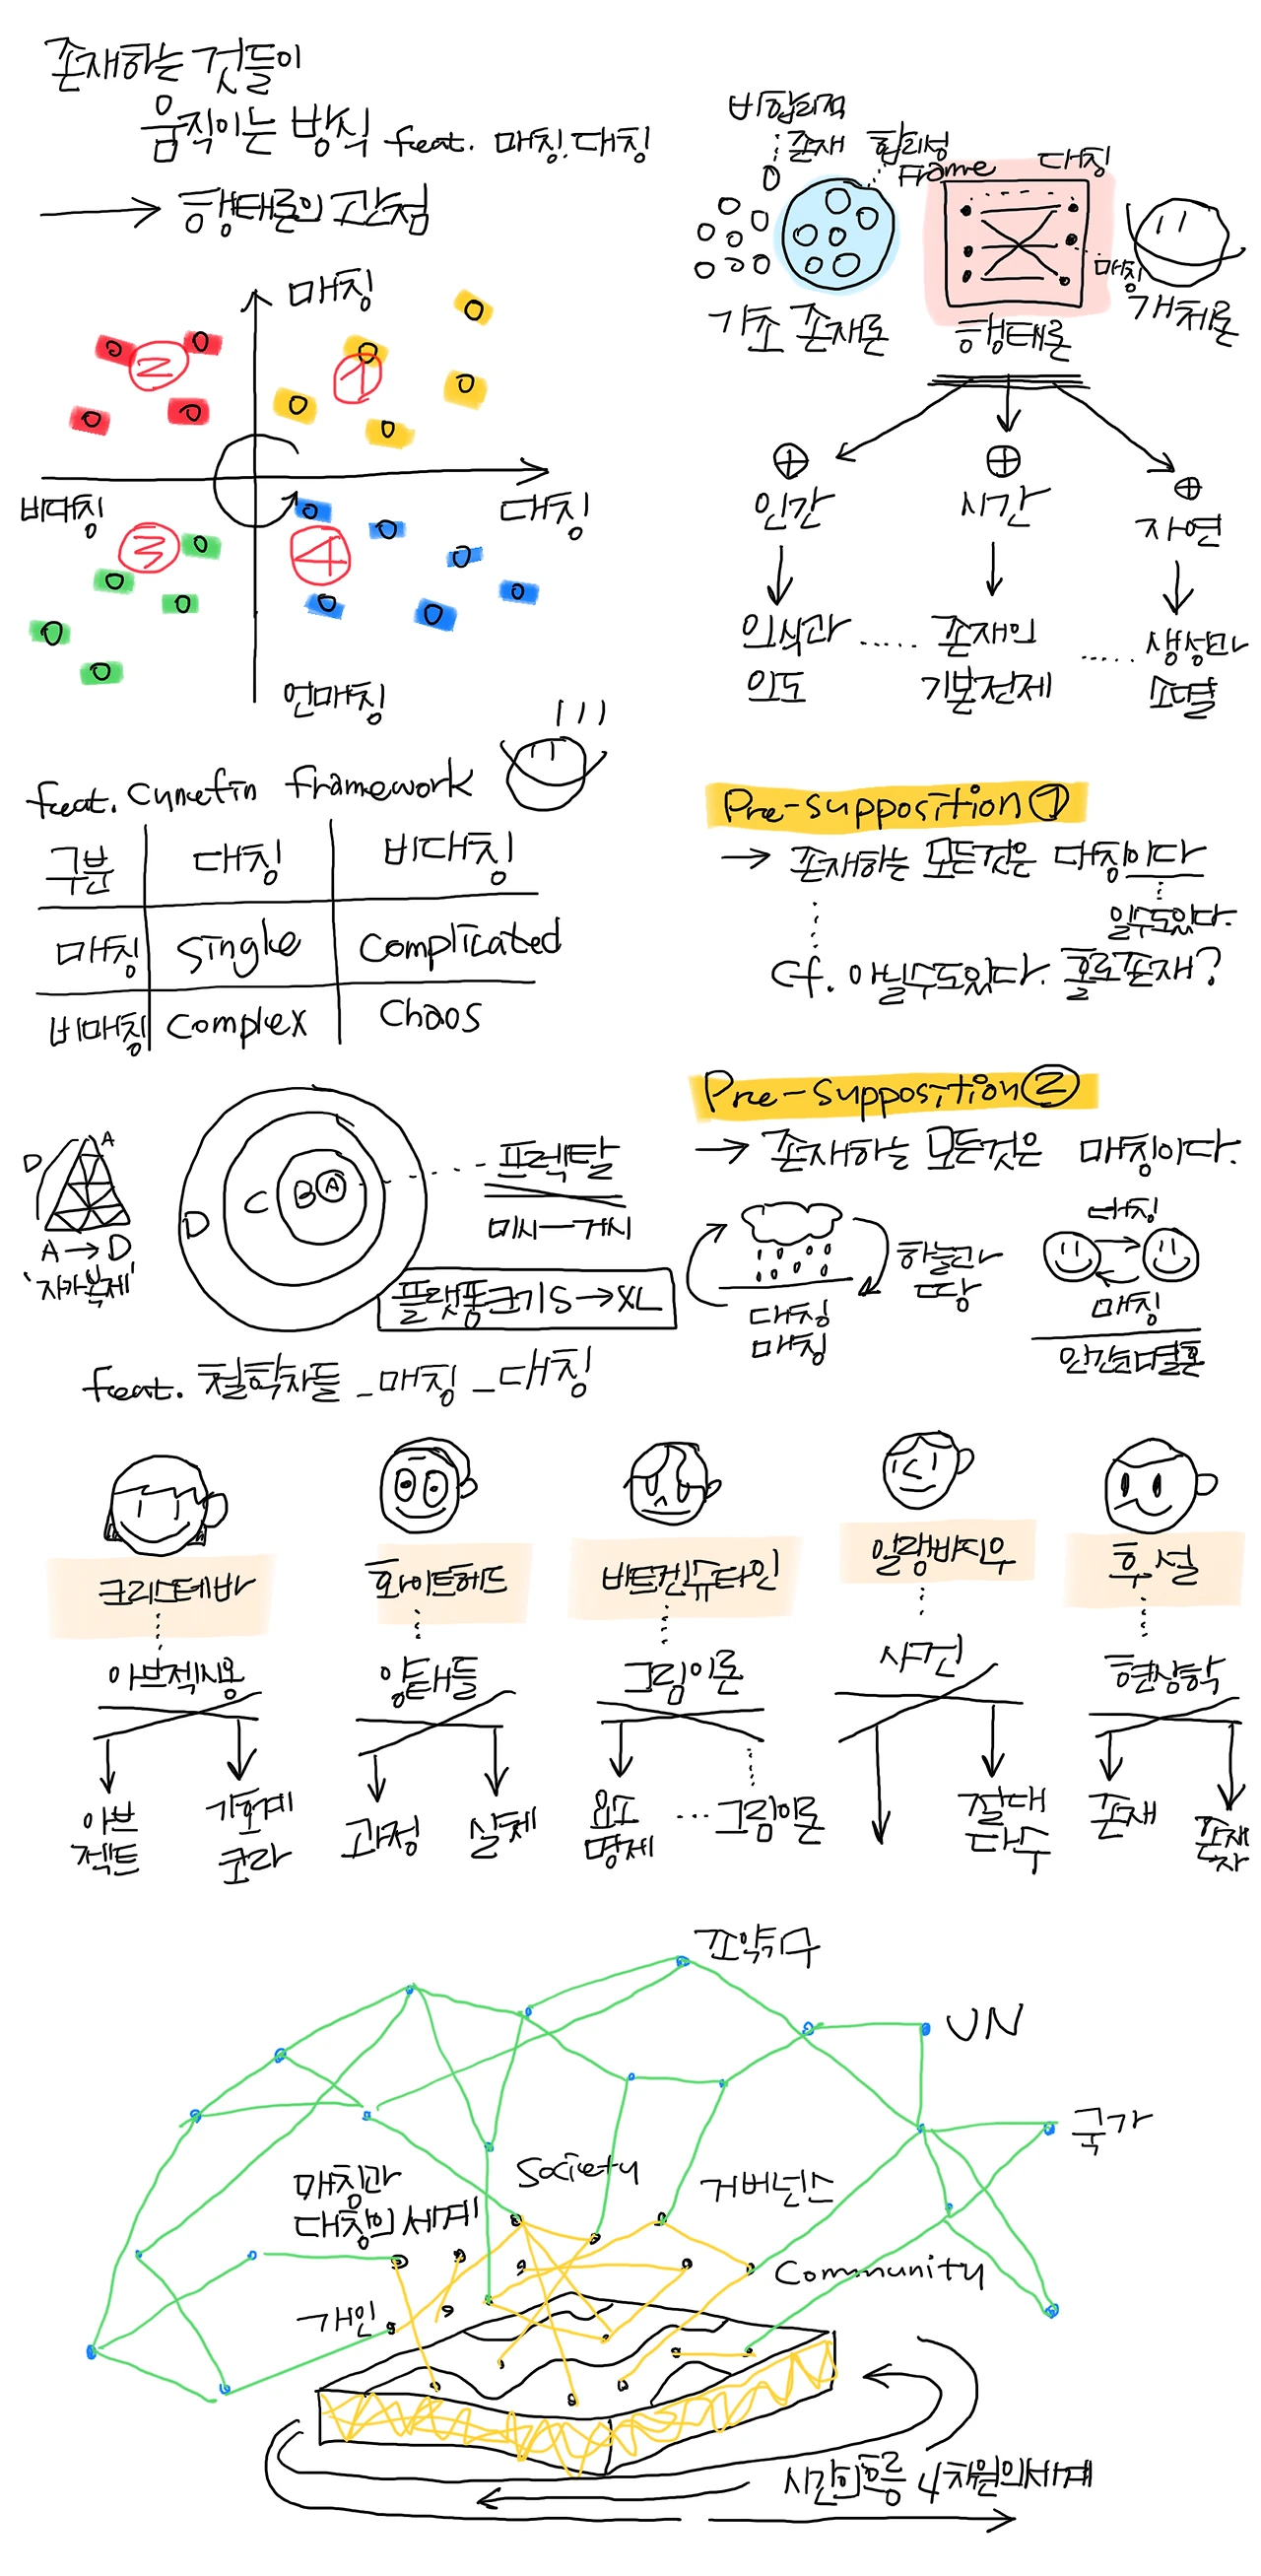 존재하는 것들이
움직이는 방식 feat. 매칭.대칭
→ 형태론의 관점
매칭
②
①
비대칭
대칭
③
④
언매칭
비합리적
존재
합리성
Frame
대칭
매칭
기초 존재론
형태론
개체론
인간
시간
자연
의식과 ..... 존재의 ..... 생성과
의도
기본전제
소멸
feat. Cynefin framework
구분 대칭 비대칭
매칭 Single Complicated
비매칭 Complex Chaos
Pre-supposition①
→ 존재하는 모든것은 대칭이다
일수도있다.
Cf. 아닐수도있다. 홀로존재?
Pre-supposition②
→ 존재하는 모든것은 매칭이다.
D A
A → D
'자가복제'
D C B A
프렉탈
미시—거시
플랫폼크기S→XL
하늘과
땅
대칭
매칭
대칭
매칭
인간의결혼
feat. 철학자들_매칭_대칭
크리스테바
화이트헤드
비트겐슈타인
알랭바디우
후설
아브젝시옹
양태들
그림이론
사건
현상학
아브
젝트
기호계
코라
과정
실제
요소
명제
...그림이론
절대
다수
존재
존재
자
조약기구
UN
국가
매칭과
대칭의 세계
Society
거버넌스
Community
개인
시간의흐름 4차원의세계